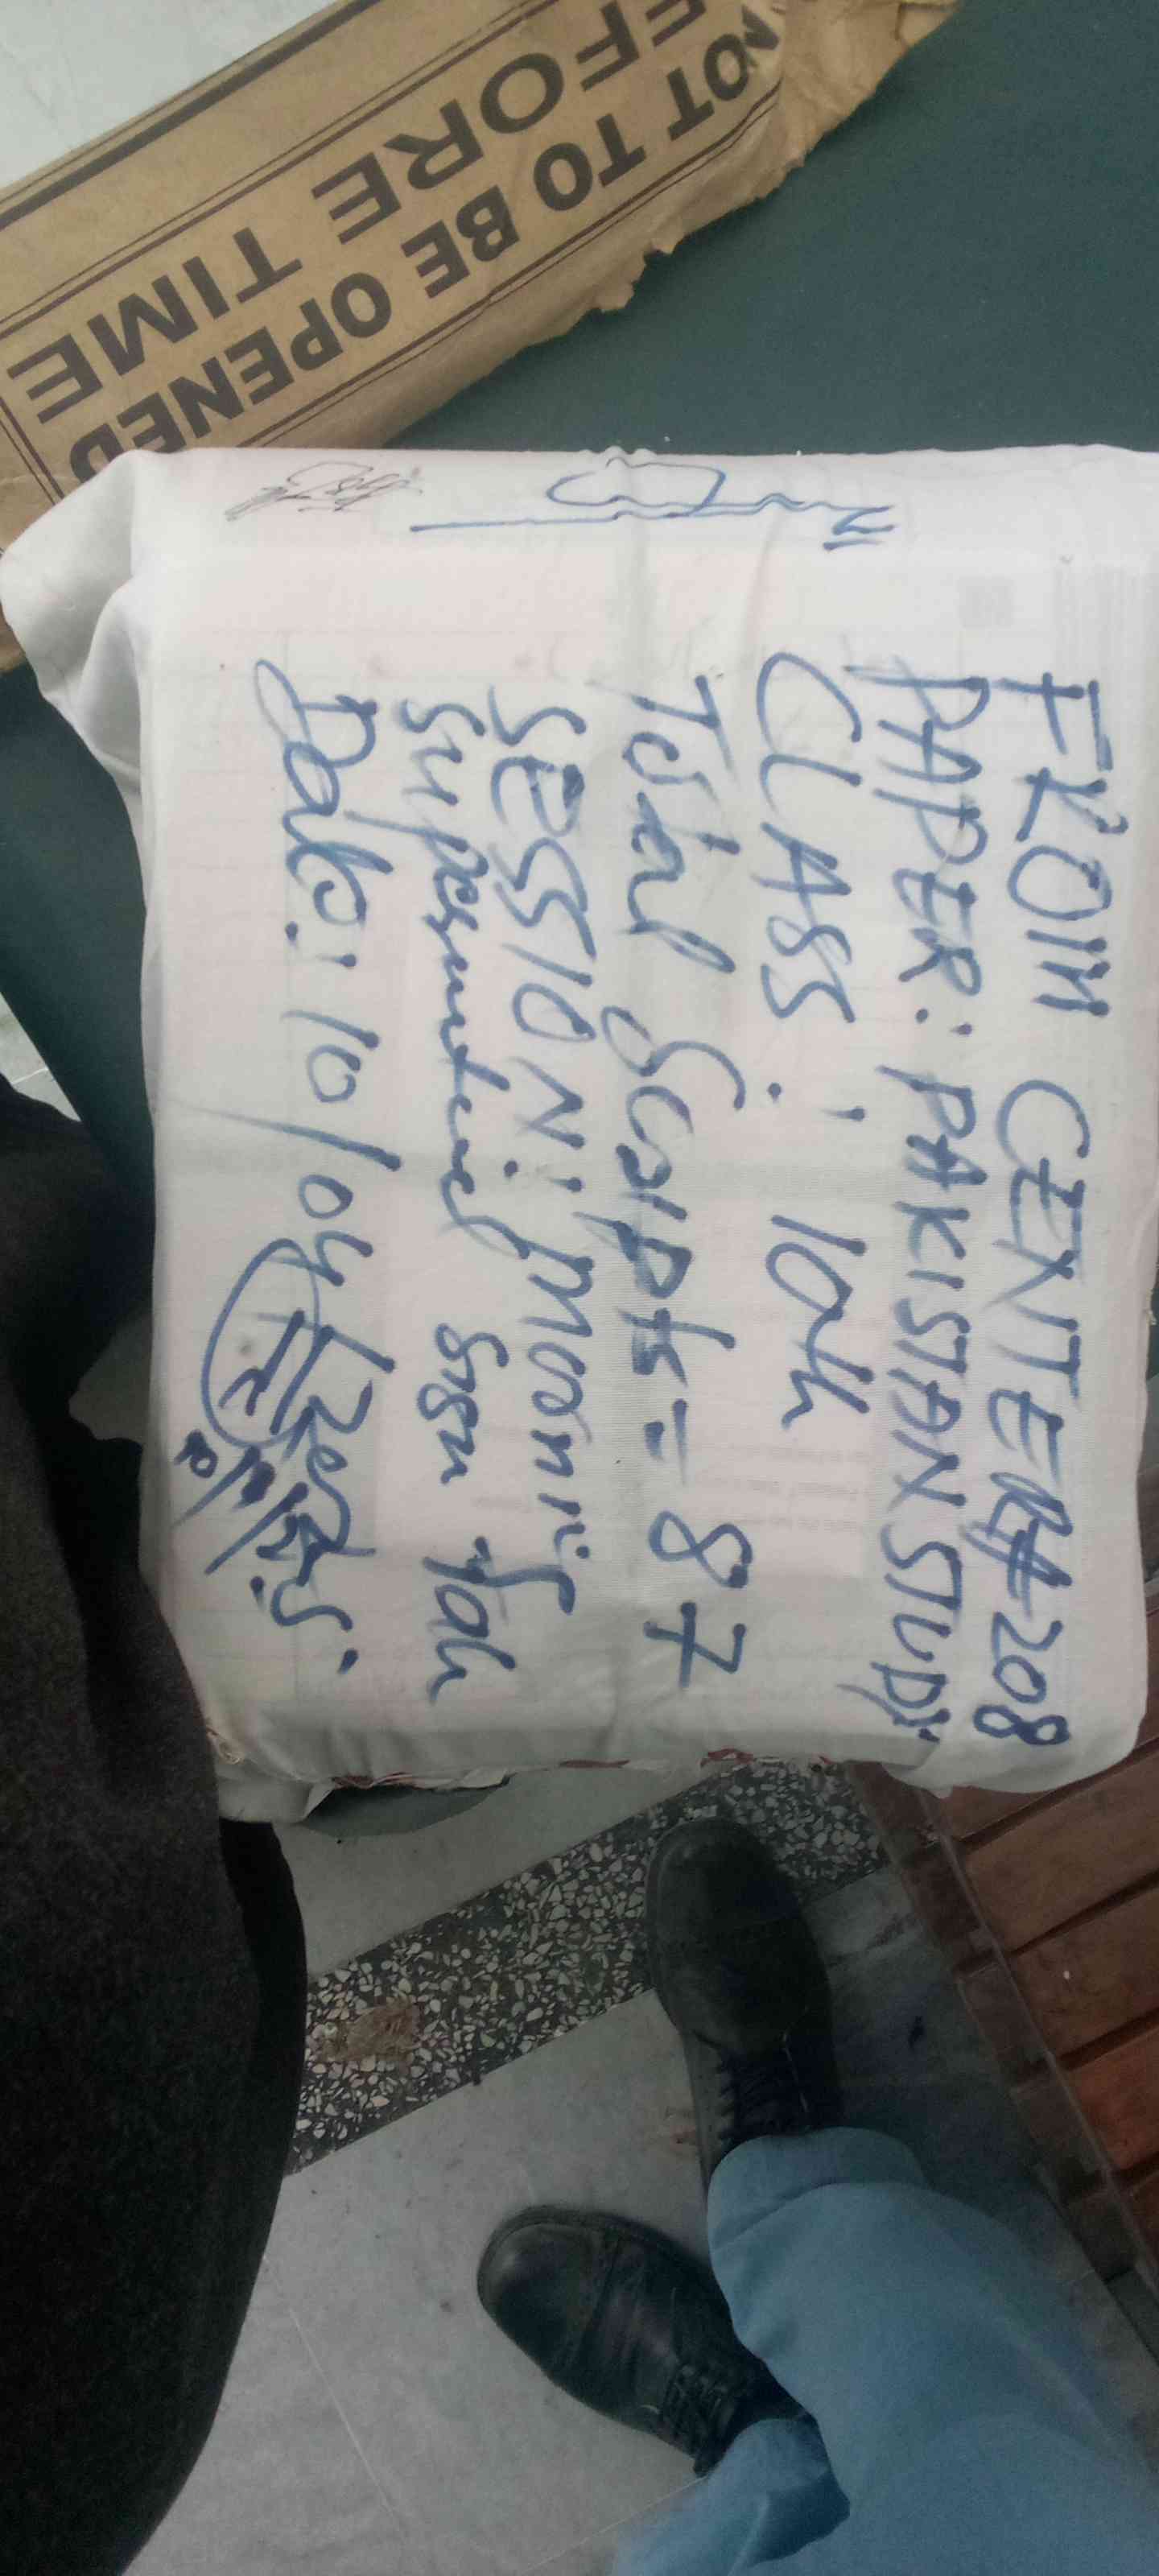 NOT TO BE OPENED
BEFORE TIME
FROM CENTER#208
PAPER: PAKISTAN STUDY
CLASS : 10th
Total Scripts = 87
SESSION: Morning
Superintendent Sign
Date: 10/04/2025